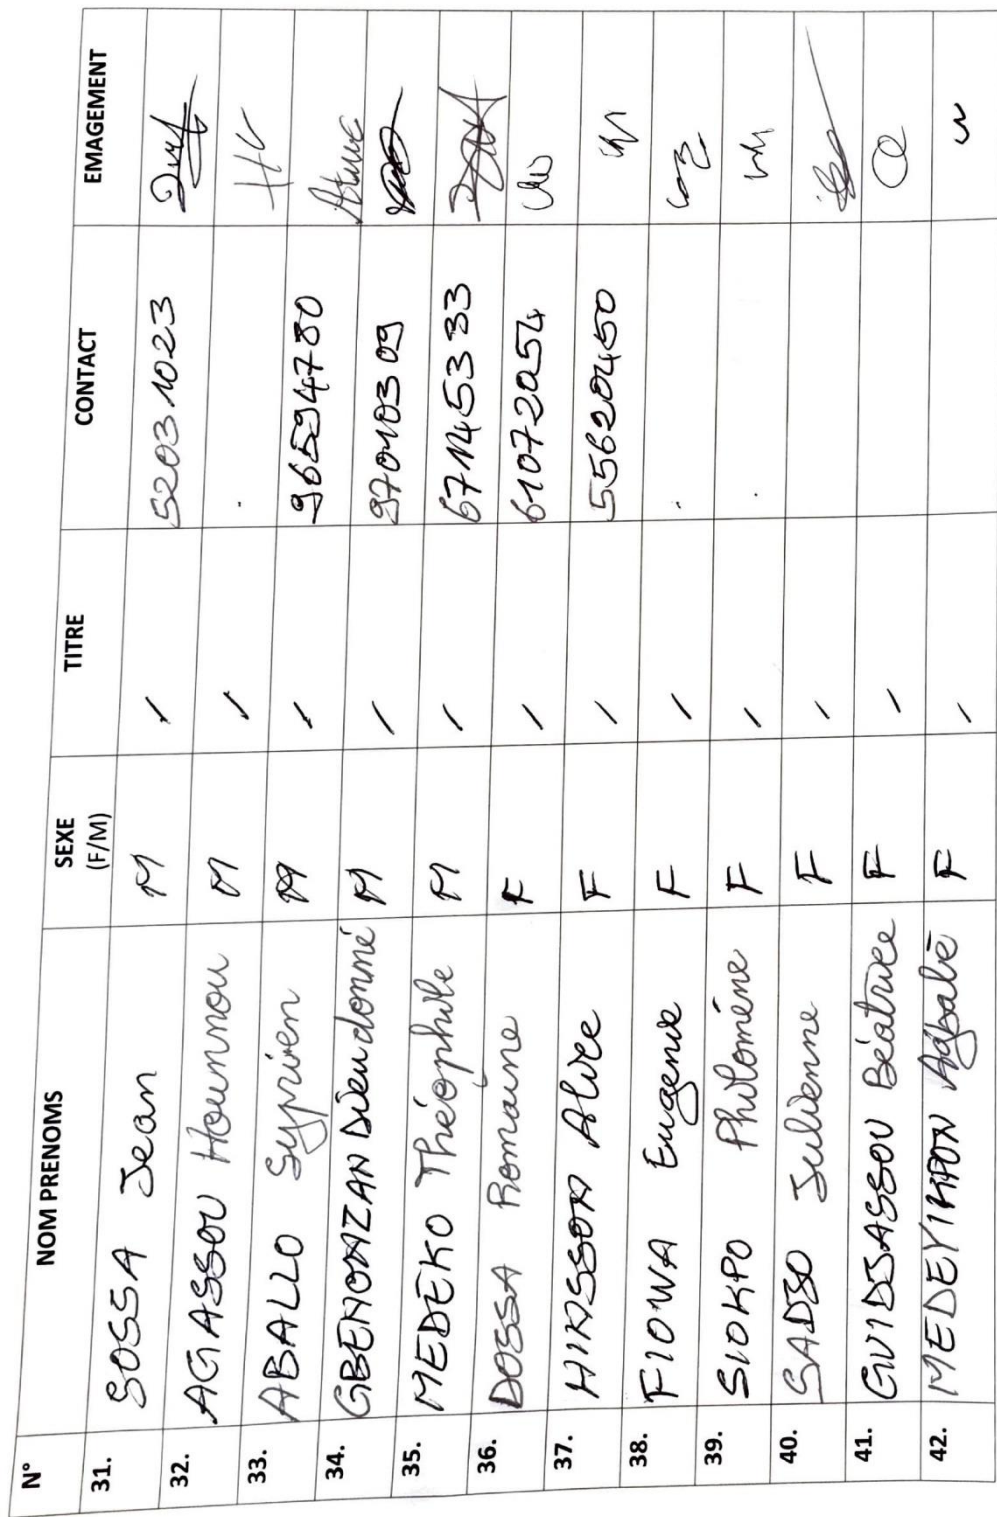 N° NOM PRENOMS SEXE (F/M) TITRE CONTACT EMAGEMENT
31. SOSSA Jean M / 52031023
32. AGASSOU Hounnou M /
33. ABALLO Syprien M / 96594780
34. GBENONZAN Dieudonné M / 97010309
35. MEDEKO Théophile M / 67145333
36. DOSSA Romaine F / 61072054
37. HINSSON Alice F / 55620450
38. FIOWA Eugenie F /
39. SIOKPO Philomène F /
40. SADJO Julienne F /
41. GUIDJASSOU Béatrice F /
42. MEDEYINPON Agbalè F /